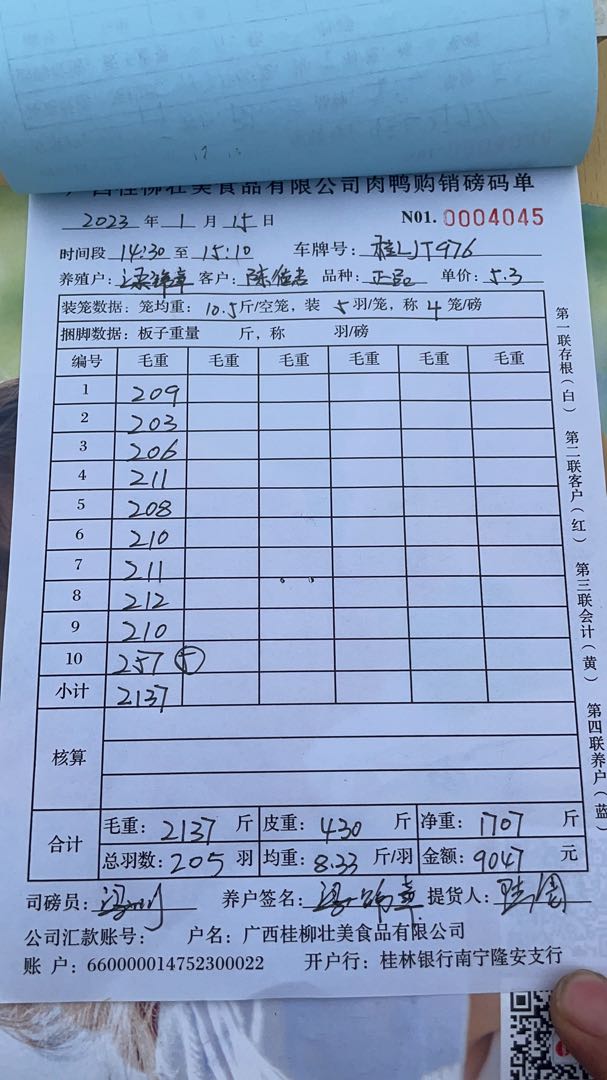 广西桂柳壮美食品有限公司肉鸭购销磅码单
2023 年 1 月 15 日 N01. 0004045
时间段 14:30 至 15:10 车牌号: 桂LJT976
养殖户: 客户: 品种: 正品 单价: 5.3
装笼数据: 笼均重: 10.5 斤/空笼, 装 5 羽/笼, 称 4 笼/磅
捆脚数据: 板子重量 斤, 称 羽/磅
编号 毛重 毛重 毛重 毛重 毛重 毛重
1 209
2 203
3 206
4 211
5 208
6 210
7 211
8 212
9 210
10 257 ⑤
小计 2137
核算
合计 毛重: 2137 斤 皮重: 430 斤 净重: 1707 斤
总羽数: 205 羽 均重: 8.33 斤/羽 金额: 9047 元
司磅员: 养户签名: 提货人:
公司汇款账号: 户名: 广西桂柳壮美食品有限公司
账 户: 660000014752300022 开户行: 桂林银行南宁隆安支行
第一联存根(白) 第二联客户(红) 第三联会计(黄) 第四联养户(蓝)